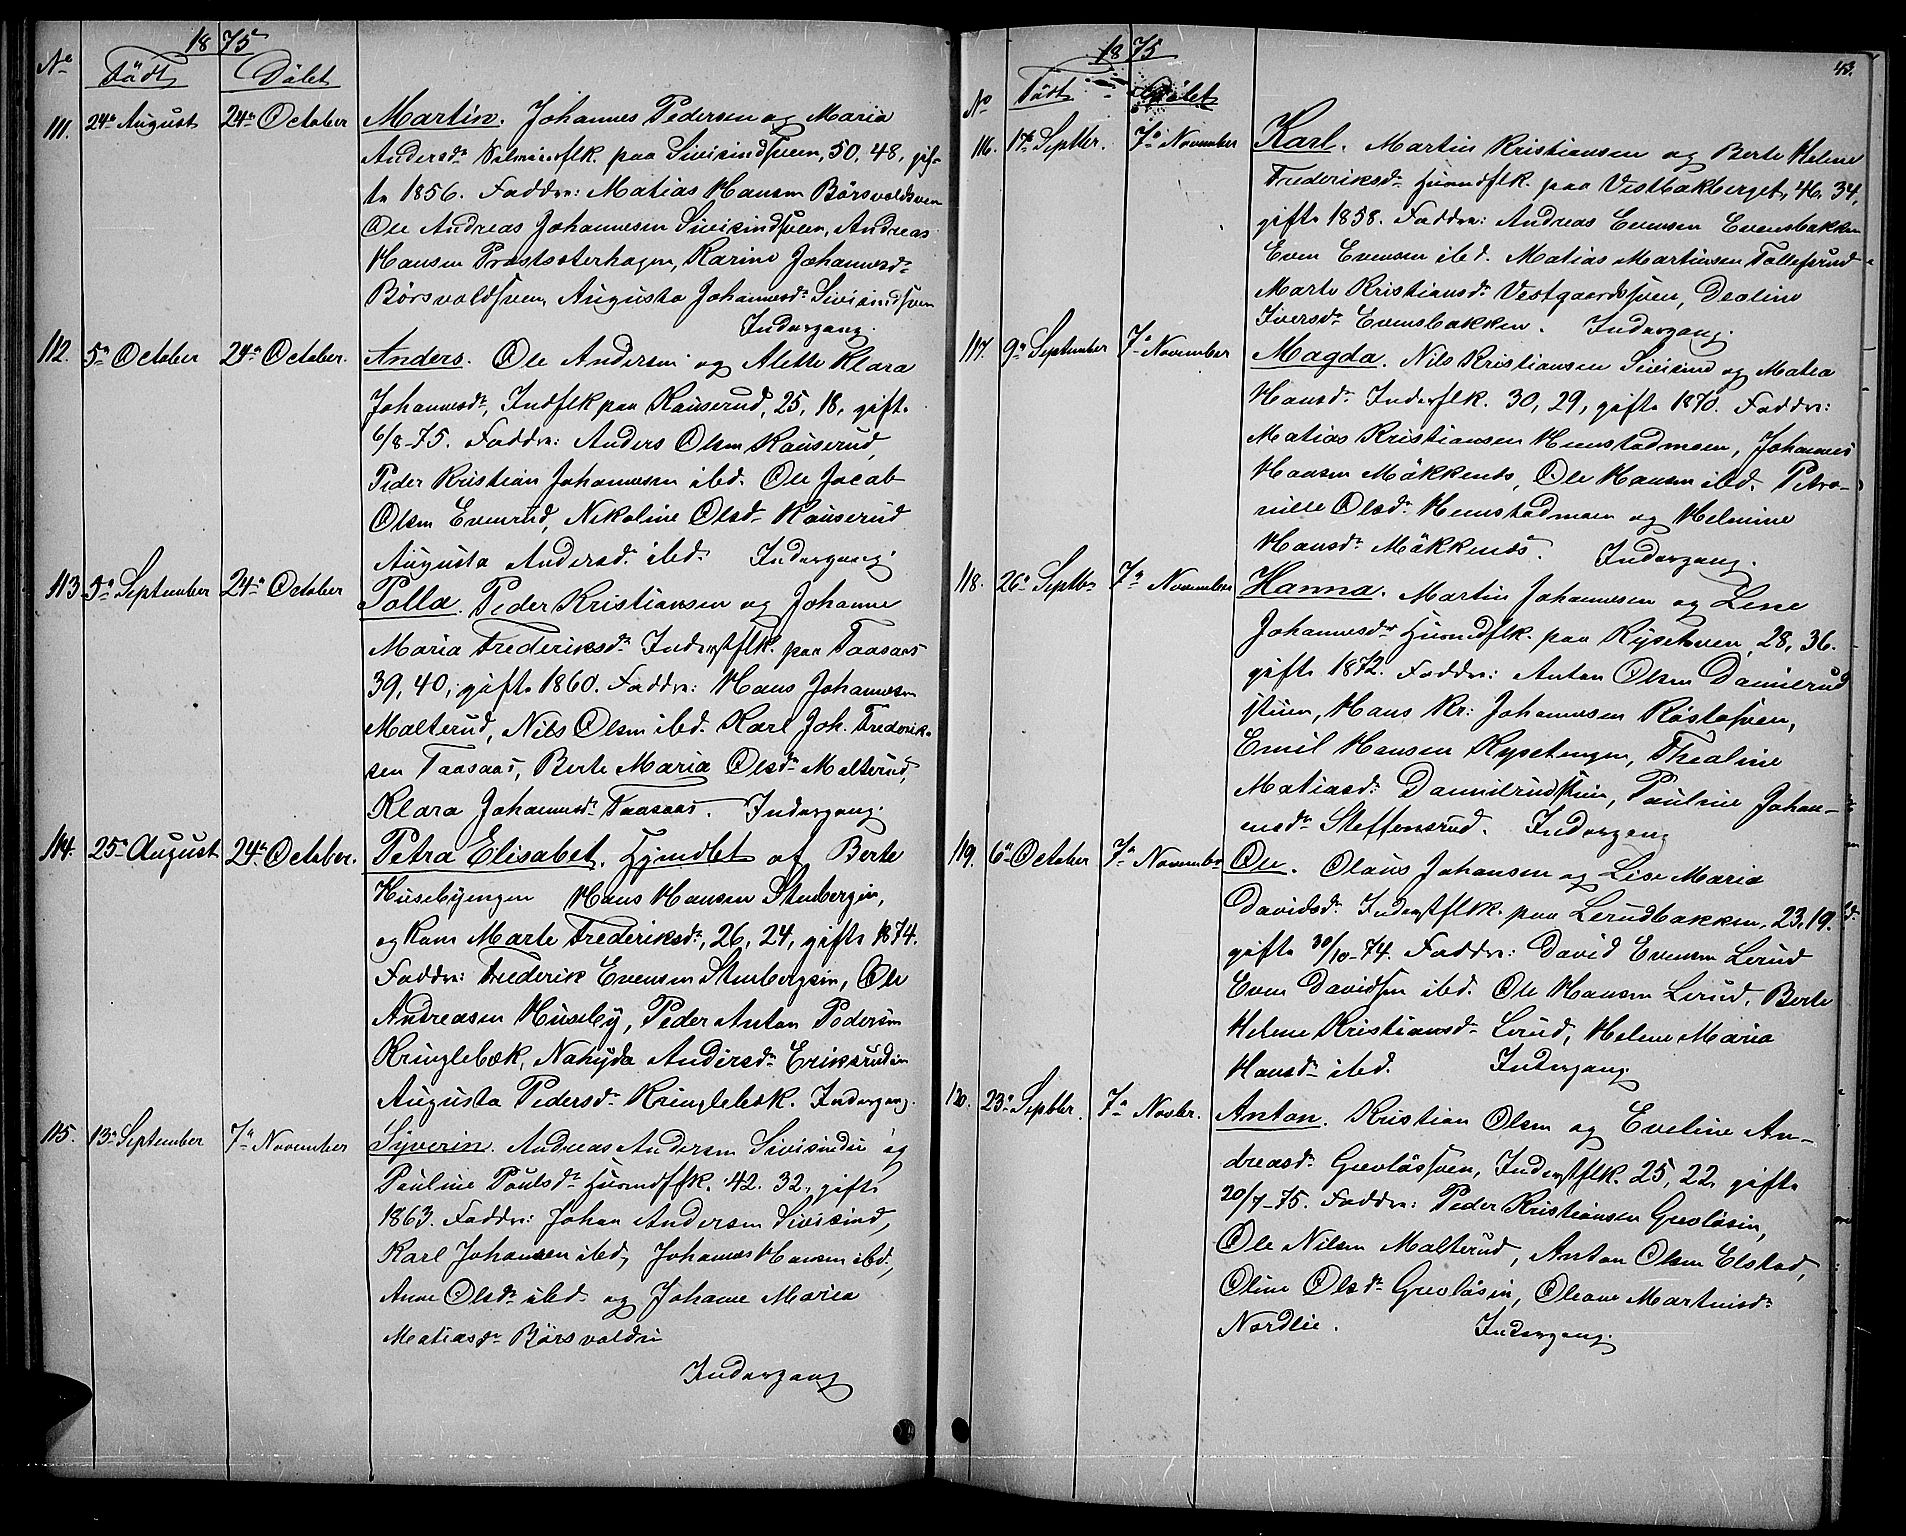 1875
No Födt Döbt
111. 24de August 24de October Martin. Johannes Pedersen og Maria
Andersdr. paa Sivisindsveen, 50, 48, gif-
te 1856. Faddre: Matias Hansen Börsvoldsveen
Ole Andreas Johannesen Sivisindsveen, Andreas
Hansen Præstsæterhagen, Karine Johannesdr.
Börsvoldsveen, Augusta Johannesdr. Sivisindsveen
Indergang.
112. 5te October 24de October. Anders. Ole Andersen og Alette Klara
Johannesdr., Indflk paa Kauserud, 25, 18, gifte
6/8-75. Faddre: Anders Olsen Kauserud,
Peder Kristian Johannesen ibd. Ole Jacob
Olsen Evenrud, Nikoline Olsdr. Kauserud
Augusta Andersdr. ibd. Indergang.
113 September 24de October Polla. Peder Kristiansen og Johanne
Maria Frederiksdr. Inderstflk. paa Taasaas
39, 40, gifte 1860. Faddre: Hans Johannesen
Malterud, Nils Olsen ibd. Karl Joh. Frederik-
sen Taasaas, Berte Maria Olsdr. Malterud,
Klara Johannesdr. Taasaas. Indergang.
114. 25de August 24de October. Petra Elisabet. Hjemdöbt af Berte
Husebyengen Hans Hansen Stenbergeie,
og Kone Marte Frederiksdr., 26, 24, gifte 1874.
Faddre: Frederik Evensen Stenbergeie, Ole
Andreasen Huseby, Peder Anton Pedersen
Kringlebæk, Nahyda Andersdr. Eriksrudeie
Augusta Pedersdr. Kringlebæk. Indergang.
115. 13de September 7de November Syverin. Andreas Andersen Sivisindeie og
Pauline Paulsdr. Husmdflk. 42. 32, gifte
1863. Faddre: Johan Andersen Sivisind,
Karl Johansen ibd, Johannes Hansen ibd.,
Anne Olsdr. ibd. og Johanne Maria
Matiasdr. Börsvoldeie
Indergang
1875
43.
No Födt Döbt
116. 17de Septbr. 7de November Karl. Martin Kristiansen og Berte Helene
Frederiksdr. Husmdflk. paa Vestbakberget, 46, 34,
gifte 1858. Faddre: Andreas Evensen Evensbakken
Even Evensen ibd. Matias Martinsen Tollefsrud
Marte Kristiansdr. Vestgaardsveen, Deoline
Iversdr. Evensbakken. Indergang.
117. 9de September 7de November Magda. Nils Kristiansen Sivisind og Matea
Hansdr. Inderflk. 30, 29, gifte 1870. Faddre:
Matias Kristiansen Hemstadmoen, Johannes
Hansen Mökkenes, Ole Hansen ibd. Petro-
nille Olsdr. Hemstadmoen og Helmine
Hansdr. Mökkenes. Indergang.
118. 26de Septbr 7de November Hanna. Martin Johannesen og Lene
Johannesdr. Husmdflk. paa Rysetveen, 28, 36.
gifte 1872. Faddre: Anton Olsen Danielrud
stuen, Hans Kr: Johannesen Röstosveen,
Emil Hansen Rysetengen, Thealine
Matiasdr. Danielrudstuen, Pauline Johan-
nesdr. Steffensrud. Indergang
119. 6te October 7de November Ole. Olaus Johansen og Lise Maria
Davidsdr. Inderstflk. paa Lerudbakken, 23, 19.
gifte 30/10-74. Faddre: David Evensen Lerud
Even Davidsen ibd. Ole Hansen Lerud, Berte
Helene Kristiansdr. Lerud, Helene Maria
Hansdr. ibd. Indergang.
120. 23de Septbr. 7de Novbr. Anton. Kristian Olsen og Eveline An-
dreasdr. Grevlösveen, Inderstflk. 25, 22, gifte
20/7-75. Faddre: Peder Kristiansen Grevlöseie,
Ole Nilsen Malterud, Anton Olsen Elstad,
Oline Olsdr. Grevlöseie, Oleane Martinsdr.
Nordlie. Indergang.